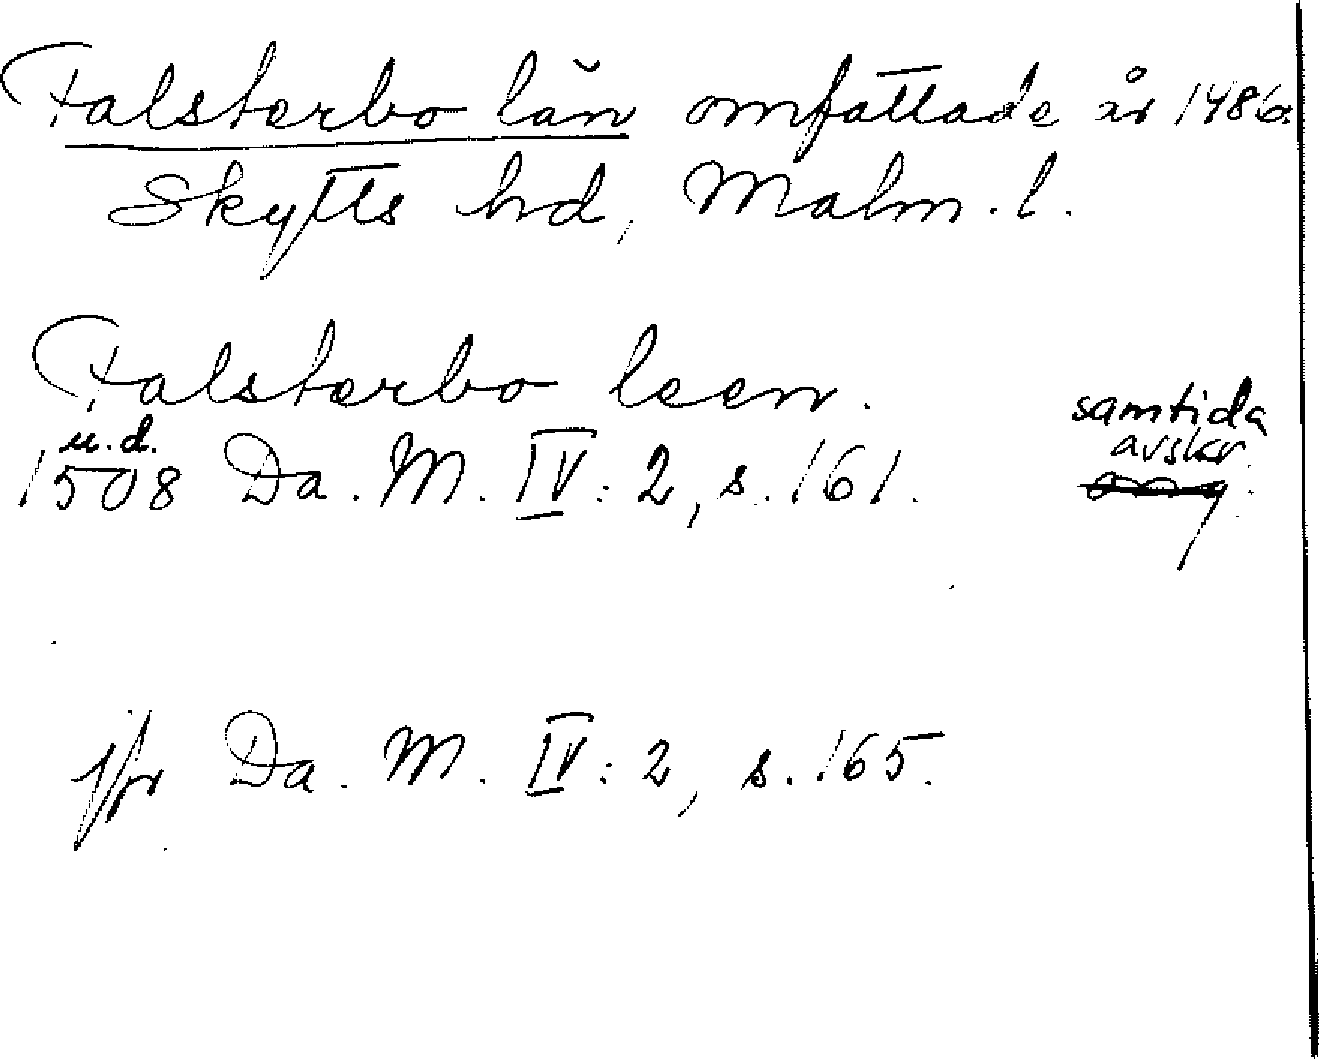 Falsterbo län omfattade år 1486.
Skytts hd, Malm. l.
Falsterbo leen.
samtida
avskr.
u.d.
1508 Da. M. IV: 2, s. 161.
jfr Da. M. IV: 2, s. 165.